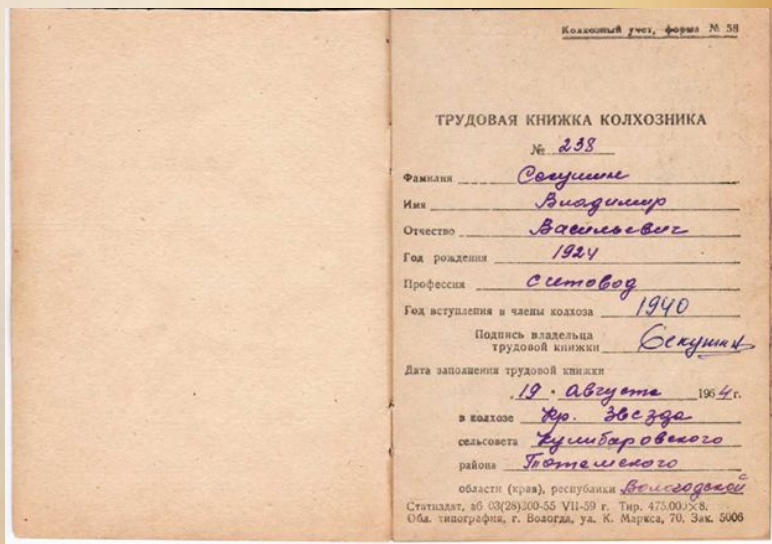 Колхозный учет, форма № 58
ТРУДОВАЯ КНИЖКА КОЛХОЗНИКА
№ 238
Фамилия Секушин
Имя Владимир
Отчество Васильевич
Год рождения 1924
Профессия счетовод
Год вступления в члены колхоза 1940
Подпись владельца
трудовой книжки Секушин
Дата заполнения трудовой книжки
„19" августа 1964 г.
в колхозе Кр. Звезда
сельсовета
района Тотемского
области (края), республики Вологодской
Статиздат, аб 03(28)300-55 VII-59 г. Тир. 475.000×8.
Обл. типография, г. Вологда, ул. К. Маркса, 70, Зак. 5006